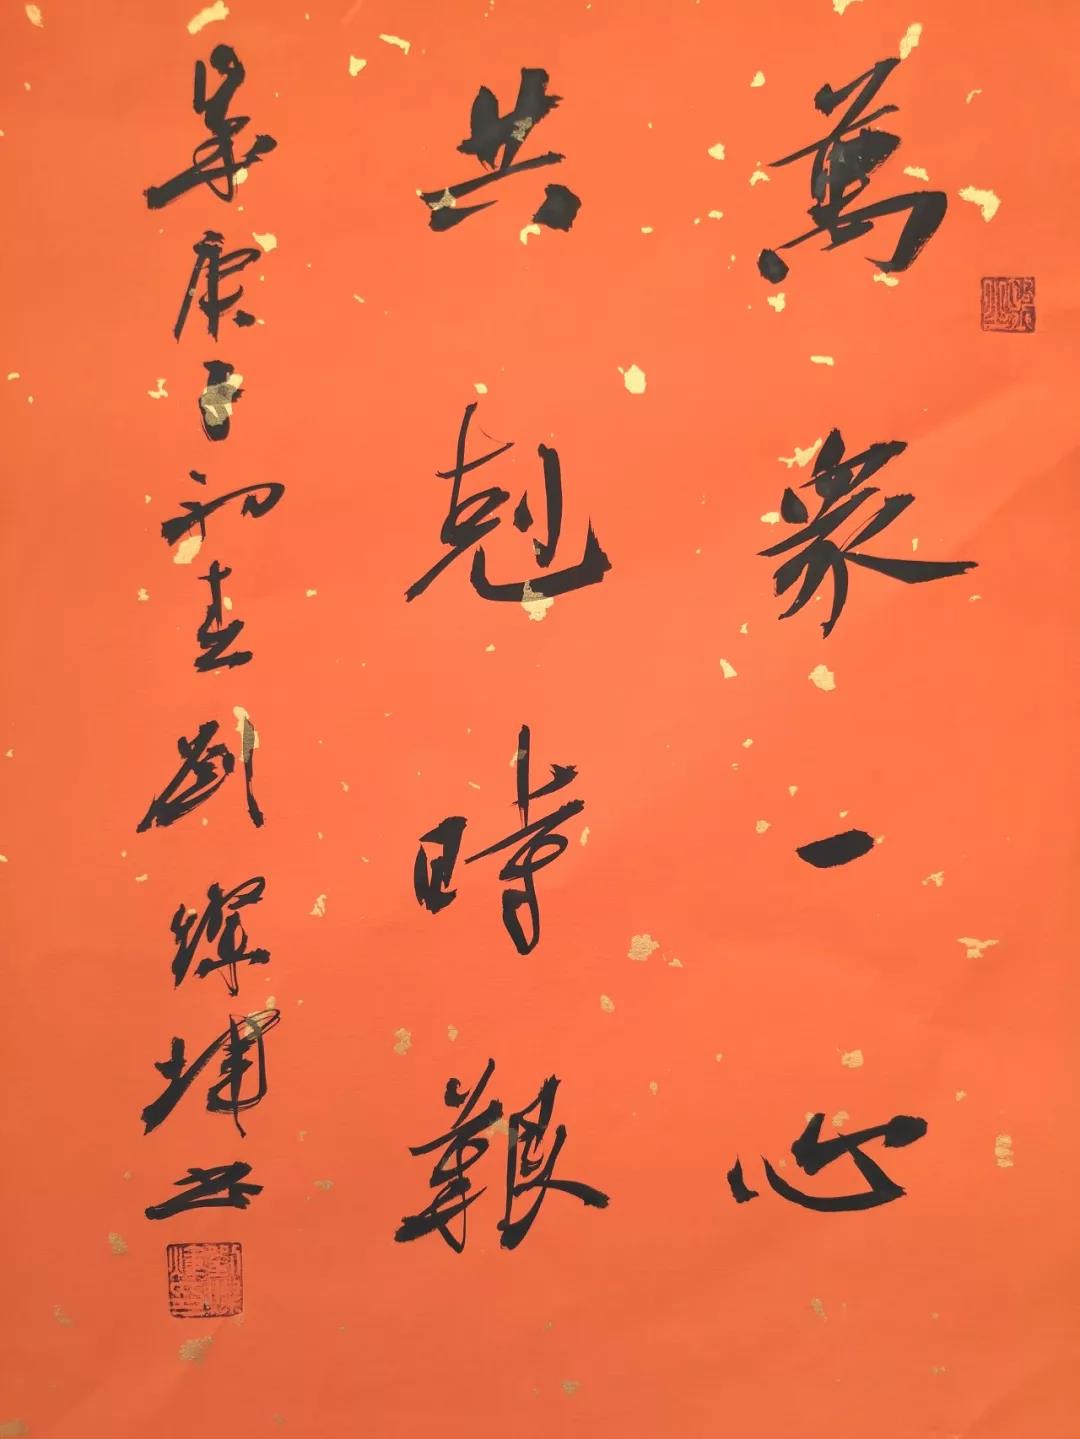 萬衆一心
共剋時艱
庚子初春劉書